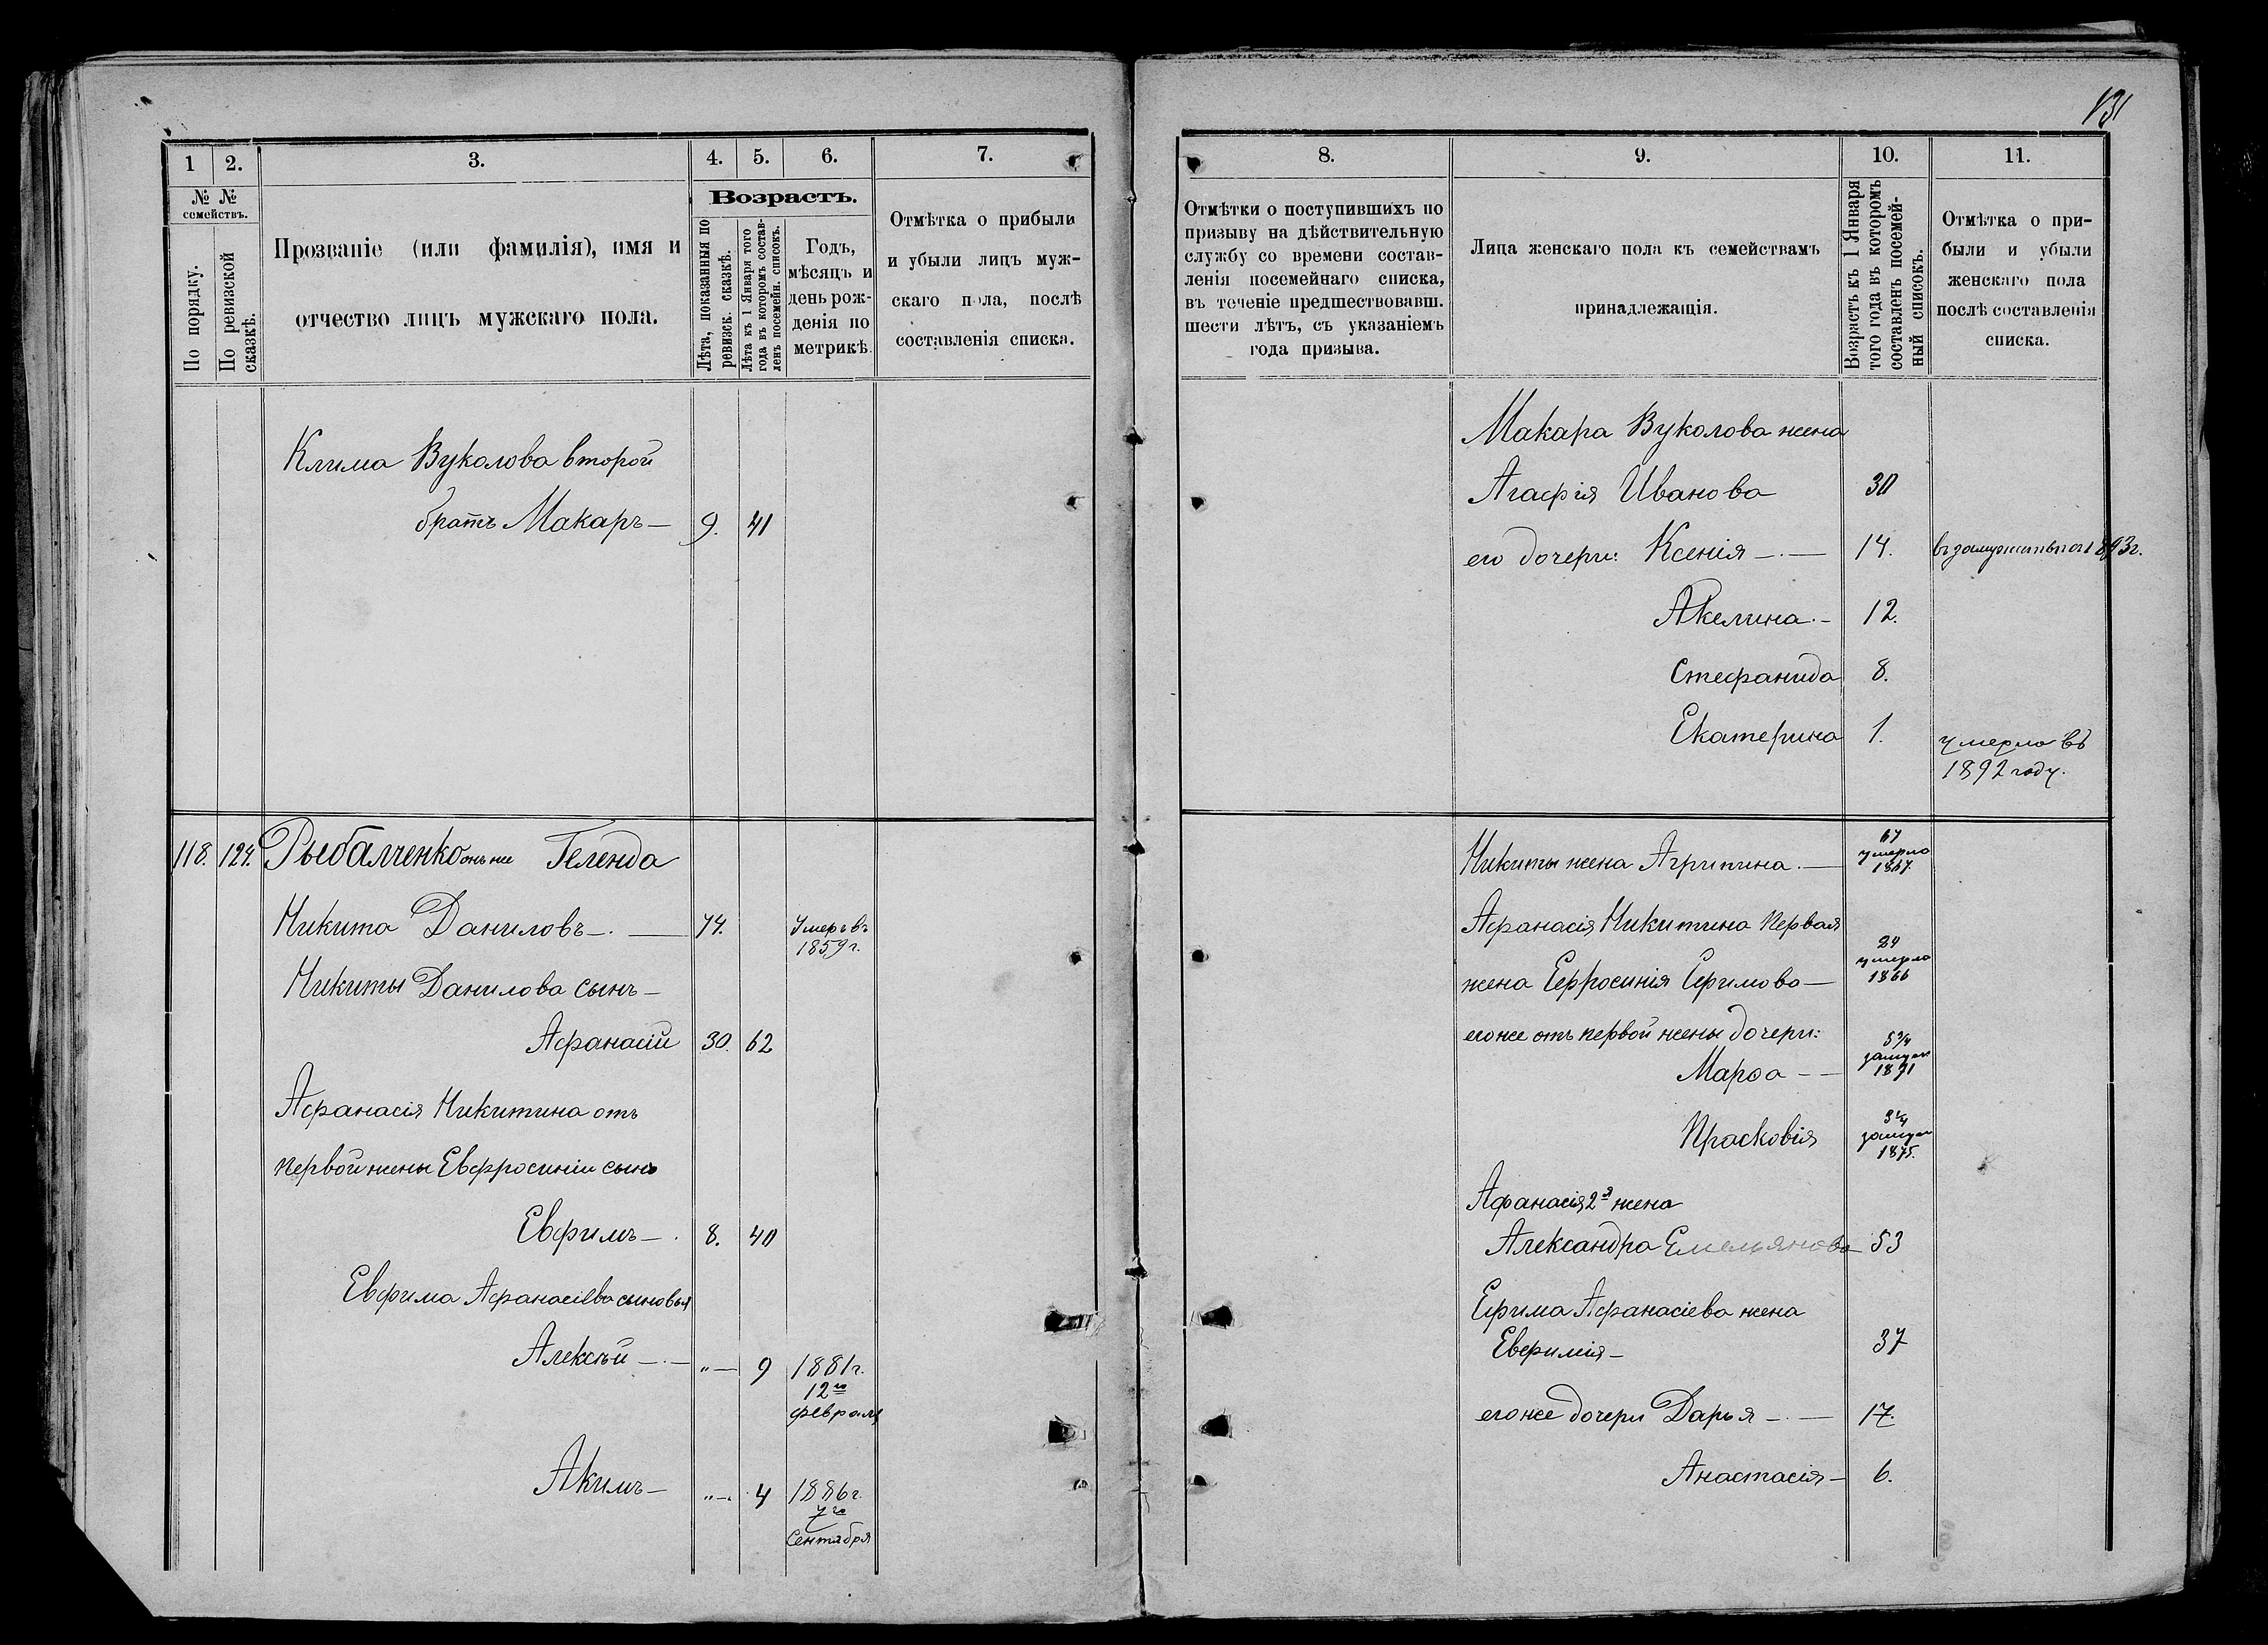 131
1 2. 3. 4. 5. 6. 7.
№ №
семействъ.
По порядку.
По ревизской
сказкѣ.
Прозваніе (или фамилія), имя и
отчество лицъ мужскаго пола.
Возрастъ.
Лѣта, показанныя по
ревизск. сказкѣ.
Лѣта къ 1 Января того
года въ которомъ состав-
ленъ посемейн. списокъ.
Годъ,
мѣсяцъ и
день рож-
денія по
метрикѣ.
Отмѣтка о прибыли
и убыли лицъ муж-
скаго пола, послѣ
составленія списка.
Клима Вуколова второй
братъ Макаръ — 9. 41
118. 124. Рыбалченко онъ же Геленда
Никита Даниловъ — 74. Умеръ въ
1859 г.
Никиты Данилова сынъ —
Афанасій 30. 62
Афанасія Никитина отъ
первой жены Евфросиніи сынъ
Евфимъ — 8. 40
Евфима Афанасіева сыновья
Алексѣй — „— 9 1881 г.
12го
февраля
Акимъ — „— 4 1886 г.
7го
Сентября
8. 9. 10. 11.
Отмѣтки о поступившихъ по
призыву на дѣйствительную
службу со времени состав-
ленія посемейнаго списка,
въ теченіе предшествовавш.
шести лѣтъ, съ указаніемъ
года призыва.
Лица женскаго пола къ семействамъ
принадлежащія.
Возрастъ къ 1 Января
того года въ которомъ
составленъ посемей-
ный списокъ.
Отмѣтка о при-
были и убыли
женскаго пола
послѣ составленія
списка.
Макара Вуколова жена
Агафія Иванова 30
его дочери: Ксенія — 14. 1893 г.
Акелина — 12.
Стефанида 8.
Екатерина 1. умерла въ
1892 году.
Никиты жена Агрипина — 67
умерла
1867.
Афанасія Никитина первая
жена Ефросинія Ефимова — 24
умерла
1866
его же отъ первой жены дочери:
Марѳа — — 5 3/4
замуж
1871
Прасковія 3 1/4
замуж
1875.
Афанасія 2я жена
Александра Емельянова 53
Ефима Афанасіева жена
Евфимія — 37
его же дочери Дарья — 17.
Анастасія — 6.